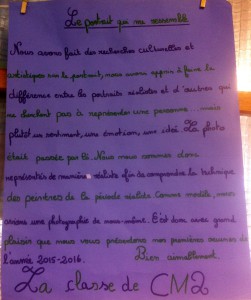 Le portrait qui me ressemble
Nous avons fait des recherches culturelles et
artistiques sur le portrait, nous avons appris à faire la
différence entre les portraits réalistes et d'autres qui
ne cherchent pas à représenter une personne ... mais
plutôt un sentiment, une émotion, une idée. La photo
était passée par là. Nous nous sommes donc
représentés de manière réaliste afin de comprendre la technique
des peintres de la période réaliste. Comme modèle, nous
avions une photographie de nous-même. C'est donc avec grand
plaisir que nous vous présentons nos premières œuvres de
l'année 2015-2016. Bien amicalement.
La classe de CM2